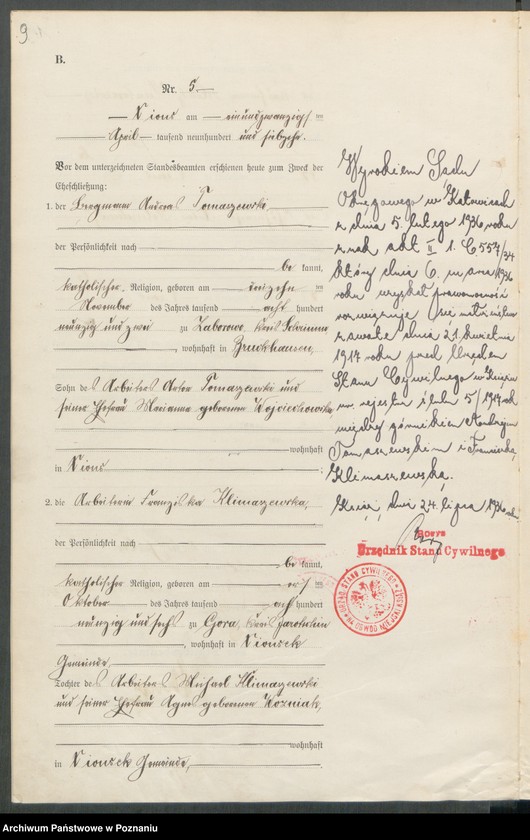 9
B.
Nr. 5
Xions am einundzwanzigsten
April tausend neunhundert und siebzehn.
Vor dem unterzeichneten Standesbeamten erschienen heute zum Zweck der
Eheschließung:
1. der Bergmann Andreas Tomaszewski,
der Persönlichkeit nach
be kannt,
katholischer Religion, geboren am dreizehn ten
November des Jahres tausend acht hundert
neunzig und zwei zu Zaborowo, Kreis Schrimm
, wohnhaft in Bruckhausen,
Sohn des Arbeiters Anton Tomaszewski und
seiner Ehefrau Marianna geborenen Wojciechowska,
wohnhaft
in Xions
2. die Arbeiterin Franziska Klimaszewska,
der Persönlichkeit nach
be kannt,
katholischer Religion, geboren am ers ten
Oktober des Jahres tausend acht hundert
neunzig und sechs zu Gora, Kreis Jarotschin
, wohnhaft in Xionsek
Gemeinde,
Tochter des Arbeiters Michael Klimaszewski
und seiner Ehefrau Agnes geborenen Wozniak,
wohnhaft
in Xionsek Gemeinde,
Wyrokiem Sądu
Okręgowego w Katowicach
z dnia 5. lutego 1936 roku
znak akt II 1. C 554/34
który dnia 6. marca 1936
roku uzyskał prawomocność
rozwiązuje się małżeństwo
zawarte dnia 21. kwietnia
1917 roku przed Urzędem
Stanu Cywilnego w Książu
nr. rejestru ślub. 5/1917 rok
między górnikiem Andrzejem
Tomaszewskim i Franciszką
Klimaszewską.
Książ, dni 24 lipca 1936 rok.
Urzędnik Stanu Cywilnego
URZĄD STANU CYWILNEGO
Archiwum Państwowe w Poznaniu